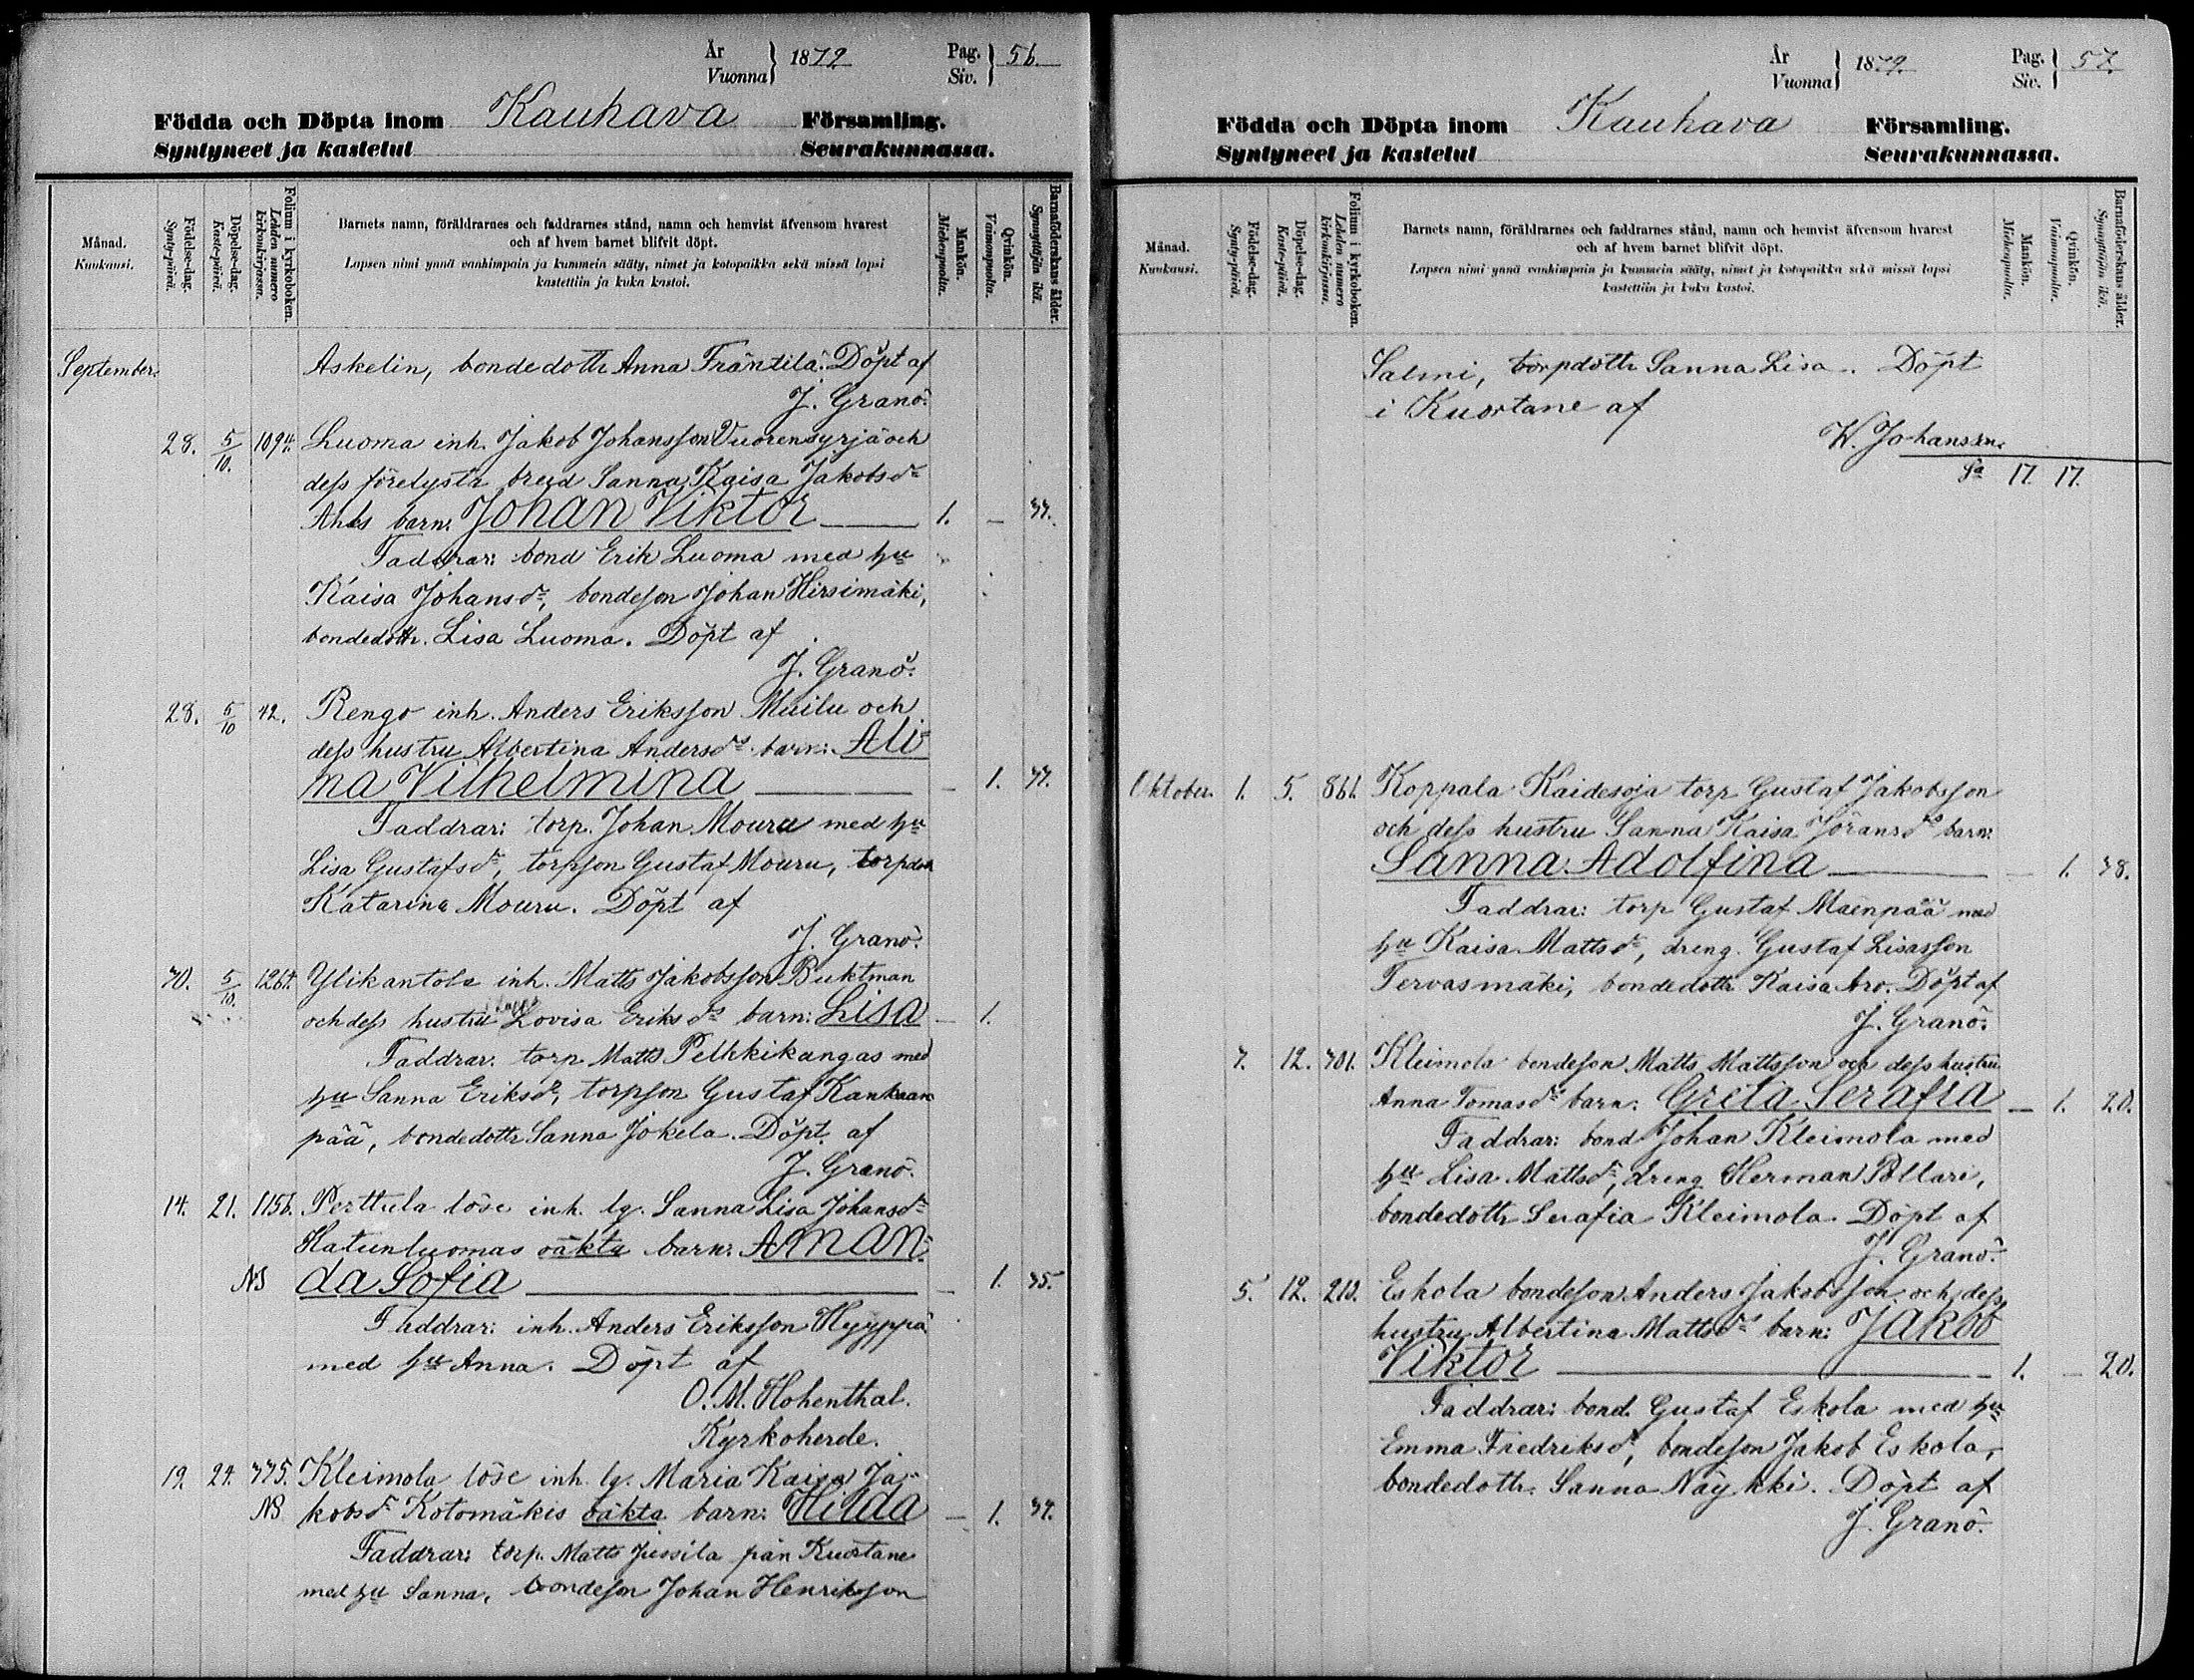 År
Vuonna } 1879.
Pag.
Siv. } 56.
Födda och Döpta inom Kauhava Församling.
Syntyneet ja kastetut Seurakunnassa.
Månad.
Kuukausi.
Födelse-dag.
Synty-päivä.
Döpelse-dag.
Kaste-päivä.
Folium i kyrkoboken.
Lehden numero kirkonkirjassa.
Barnets namn, föräldrarnes och faddrarnes stånd, namn och hemvist äfvensom hvarest
och af hvem barnet blifvit döpt.
Lapsen nimi ynnä vanhimpain ja kummein sääty, nimet ja kotopaikka sekä missä lapsi
kastettiin ja kuka kastoi.
Mankön.
Miehenpuolta.
Qvinkön.
Vaimonpuolta.
Barnaföderskans ålder.
Synnyttäjän ikä.
September. Askelin, bondedottr Anna Fräntilä. Döpt af
J. Granö.
28. 5/10. 1094. Luoma inh. Jakob Johansson Vuorensyrjä och
dess förelysta brud Sanna Kaisa Jakobsdr
barn: Johan Viktor — 1. —
Faddrar: bond Erik Luoma med hu
Kaisa Johansdr, bondeson Johan Hirsimäki,
bondedottr. Lisa Luoma. Döpt af
J. Granö.
28. 5/10 42. Rengo inh. Anders Eriksson Muilu och
dess hustru Albertina Andersdrs barn: Ali-
na Vilhelmina — — 1.
Faddrar: torp. Johan Mouru med hu
Lisa Gustafsdr, torpson Gustaf Mouru, torpdotr
Katarina Mouru. Döpt af
J. Granö.
30. 5/10. 1264. Ylikantola inh. Matts Jakobsson Buktman
och dess hustru Lovisa Eriksdrs barn: Lisa — 1.
Faddrar: torp. Matts Pelhkikangas med
hu Sanna Eriksdr, torpson Gustaf Kankaan
pää, bondedottr Sanna Jokela. Döpt af
J. Granö.
14. 21. 1156. Perttula löse inh. lg. Sanna Lisa Johansdr
Hatunluomas oäkta barn: Aman-
NB da Sofia — — 1. 35.
Faddrar: inh. Anders Eriksson Hyyppä
med hu Anna. Döpt af
O. M. Hohenthal.
Kyrkoherde.
19. 24. 375. Kleimola löse inh. lg. Maria Kaisa Ja-
NB kobsdr Kotomäkis oäkta barn: Hilda — 1. 34.
Faddrar: torp. Matts Jussila från Kuortane
med hu Sanna, bondeson Johan Henriksson
År
Vuonna } 1879.
Pag.
Siv. } 57.
Födda och Döpta inom Kauhava Församling.
Syntyneet ja kastetut Seurakunnassa.
Månad.
Kuukausi.
Födelse-dag.
Synty-päivä.
Döpelse-dag.
Kaste-päivä.
Folium i kyrkoboken.
Lehden numero kirkonkirjassa.
Barnets namn, föräldrarnes och faddrarnes stånd, namn och hemvist äfvensom hvarest
och af hvem barnet blifvit döpt.
Lapsen nimi ynnä vanhimpain ja kummein sääty, nimet ja kotopaikka sekä missä lapsi
kastettiin ja kuka kastoi.
Mankön.
Miehenpuolta.
Qvinkön.
Vaimonpuolta.
Barnaföderskans ålder.
Synnyttäjän ikä.
Salmi, torpdottr Sanna Lisa. Döpt
i Kuortane af
W. Johansson.
Sa 17. 17.
Oktober. 1. 5. 861. Koppala Kaidesoja torp Gustaf Jakobsson
och dess hustru Sanna Kaisa Göransdrs barn:
Sanna Adolfina — — 1. 38.
Faddrar: torp Gustaf Mäenpää med
hu Kaisa Mattsdr, dreng. Gustaf Lisasson
Tervasmäki, bondedottr Kaisa Aro. Döpt af
J. Granö.
3. 12. 301. Kleimola bondeson Matts Mattsson och dess hustru
Anna Tomasdrs barn: Greta Serafia — 1. 20.
Faddrar: bond. Johan Kleimola med
hu Lisa Mattsdr, dreng Herman Pollari,
bondedottr Serafia Kleimola. Döpt af
J. Granö.
5. 12. 210. Eskola bondeson Anders Jakobsson och dess
hustru Albertina Mattsdrs barn: Jakob
Viktor — 1. — 20.
Faddrar: bond. Gustaf Eskola med hu
Emma Fredriksdr, bondeson Jakob Eskola,
bondedottr. Sanna Näykki. Döpt af
J. Granö.